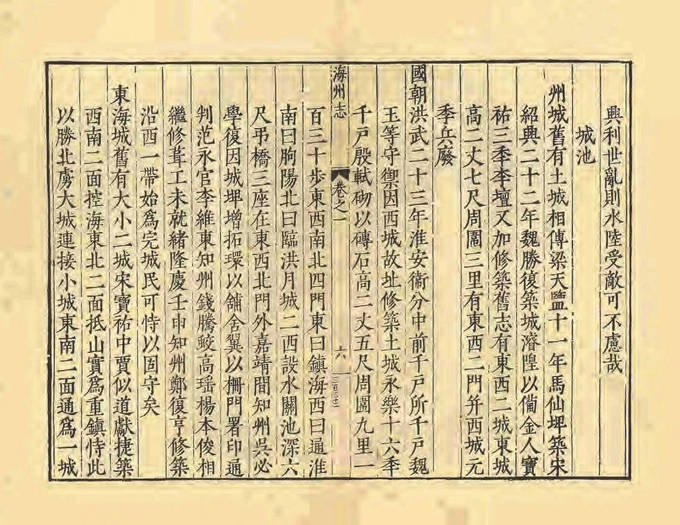 興利世亂則水陸受敵可不慮哉
城池
州城舊有土城相傳梁天監十一年馬仙琕築宋
紹興二十二年魏勝復築城濬隍以備金人寶
祐三季李璮又加修築舊志有東西二城東城
高二丈七尺周圍三里有東西二門并西城元
季兵廢
國朝洪武二十三年淮安衞分中前千戸所千戸魏
玉等守禦因西城故址修築土城永樂十六季
千戸殷軾砌以磚石高二丈五尺周圍九里一
海州志
卷之一
六
百三十歩東西南北四門東曰鎮海西曰通淮
南曰朐陽北曰臨洪月城二西設水關池深六
尺弔橋三座在東西北門外嘉靖間知州吳必
學復因城埤增拓環以舖舍翼以柵門署印通
判范永官李維東知州錢騰蛟高瑶楊本俊相
繼修葺工未就緒隆慶壬申知州鄭復亨修築
沿西一帶始爲完城民可恃以固守矣
東海城舊有大小二城宋寶祐中賈似道獻捷築
西南二面控海東北二面抵山實爲重鎮恃此
以勝北虜大城連接小城東南二面通爲一城